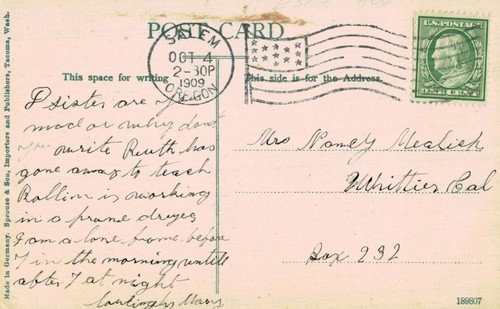 POST CARD
SALEM
OCT 4
2-30P
1909
OREGON
This space for writing
This side is for the Address.
U.S. POSTAGE
ONE CENT
sister are you
mad or why dont
you write Ruth has
gone away to teach
Rollin is working
in a prune dryer
I am alone home before
7 in the morning untill
after 7 at night
lovingly Mary
Mrs Nancy
Whittier Cal
Box 232
Made in Germany. Sprouse & Son, Importers and Publishers, Tacoma, Wash.
189807